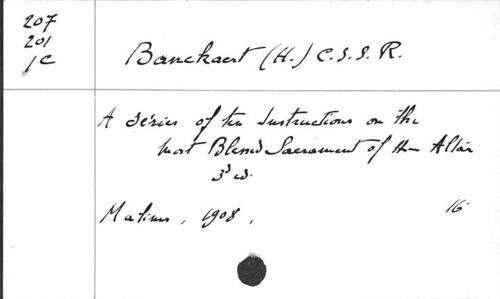 207
201
1C
Banckaert (H.) C.S.S.R.
A séries of ten Instructions on the
most Blessed Sacrament of the Altar
3d ed.
Malines, 1908,
16